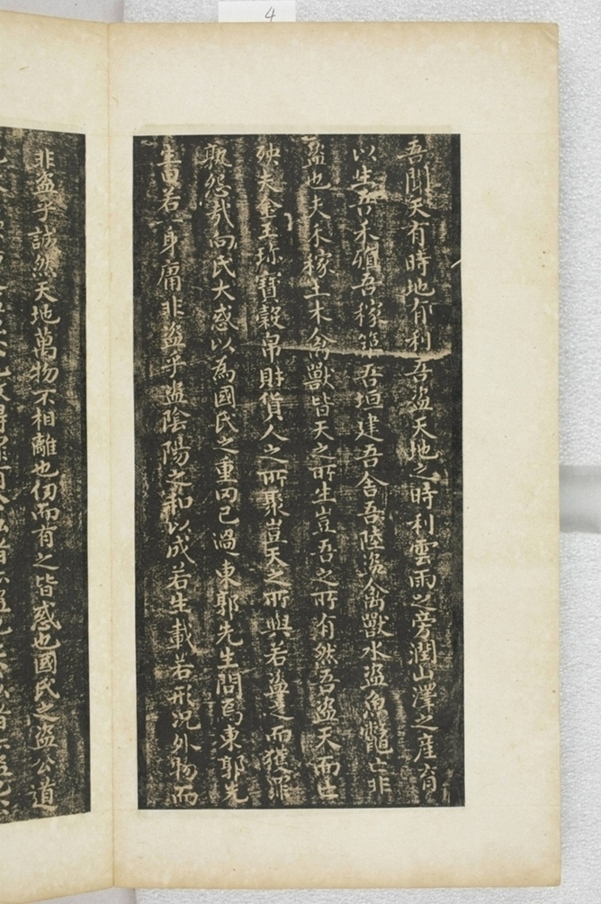 4
吾聞天有時地有利吾盗天地之時利雲雨之滂潤山澤之産育
以生吾禾殖吾稼築吾垣建吾舍吾陸盗禽獸水盗魚鼈亡非
盗也夫禾稼土木禽獸皆天之所生豈吾之所有然吾盗天而亡
殃夫金玉珎寶穀帛財貨人之所聚豈天之所與若盗之而獲罪
孰怨哉向氏大惑以為國氏之重罔己過東郭先生問焉東郭先
生曰若一身庸非盗乎盗陰陽之和以成若生載若形况外物而
非盗乎誠然天地萬物不相離也仞而有之皆惑也國氏之盗公道